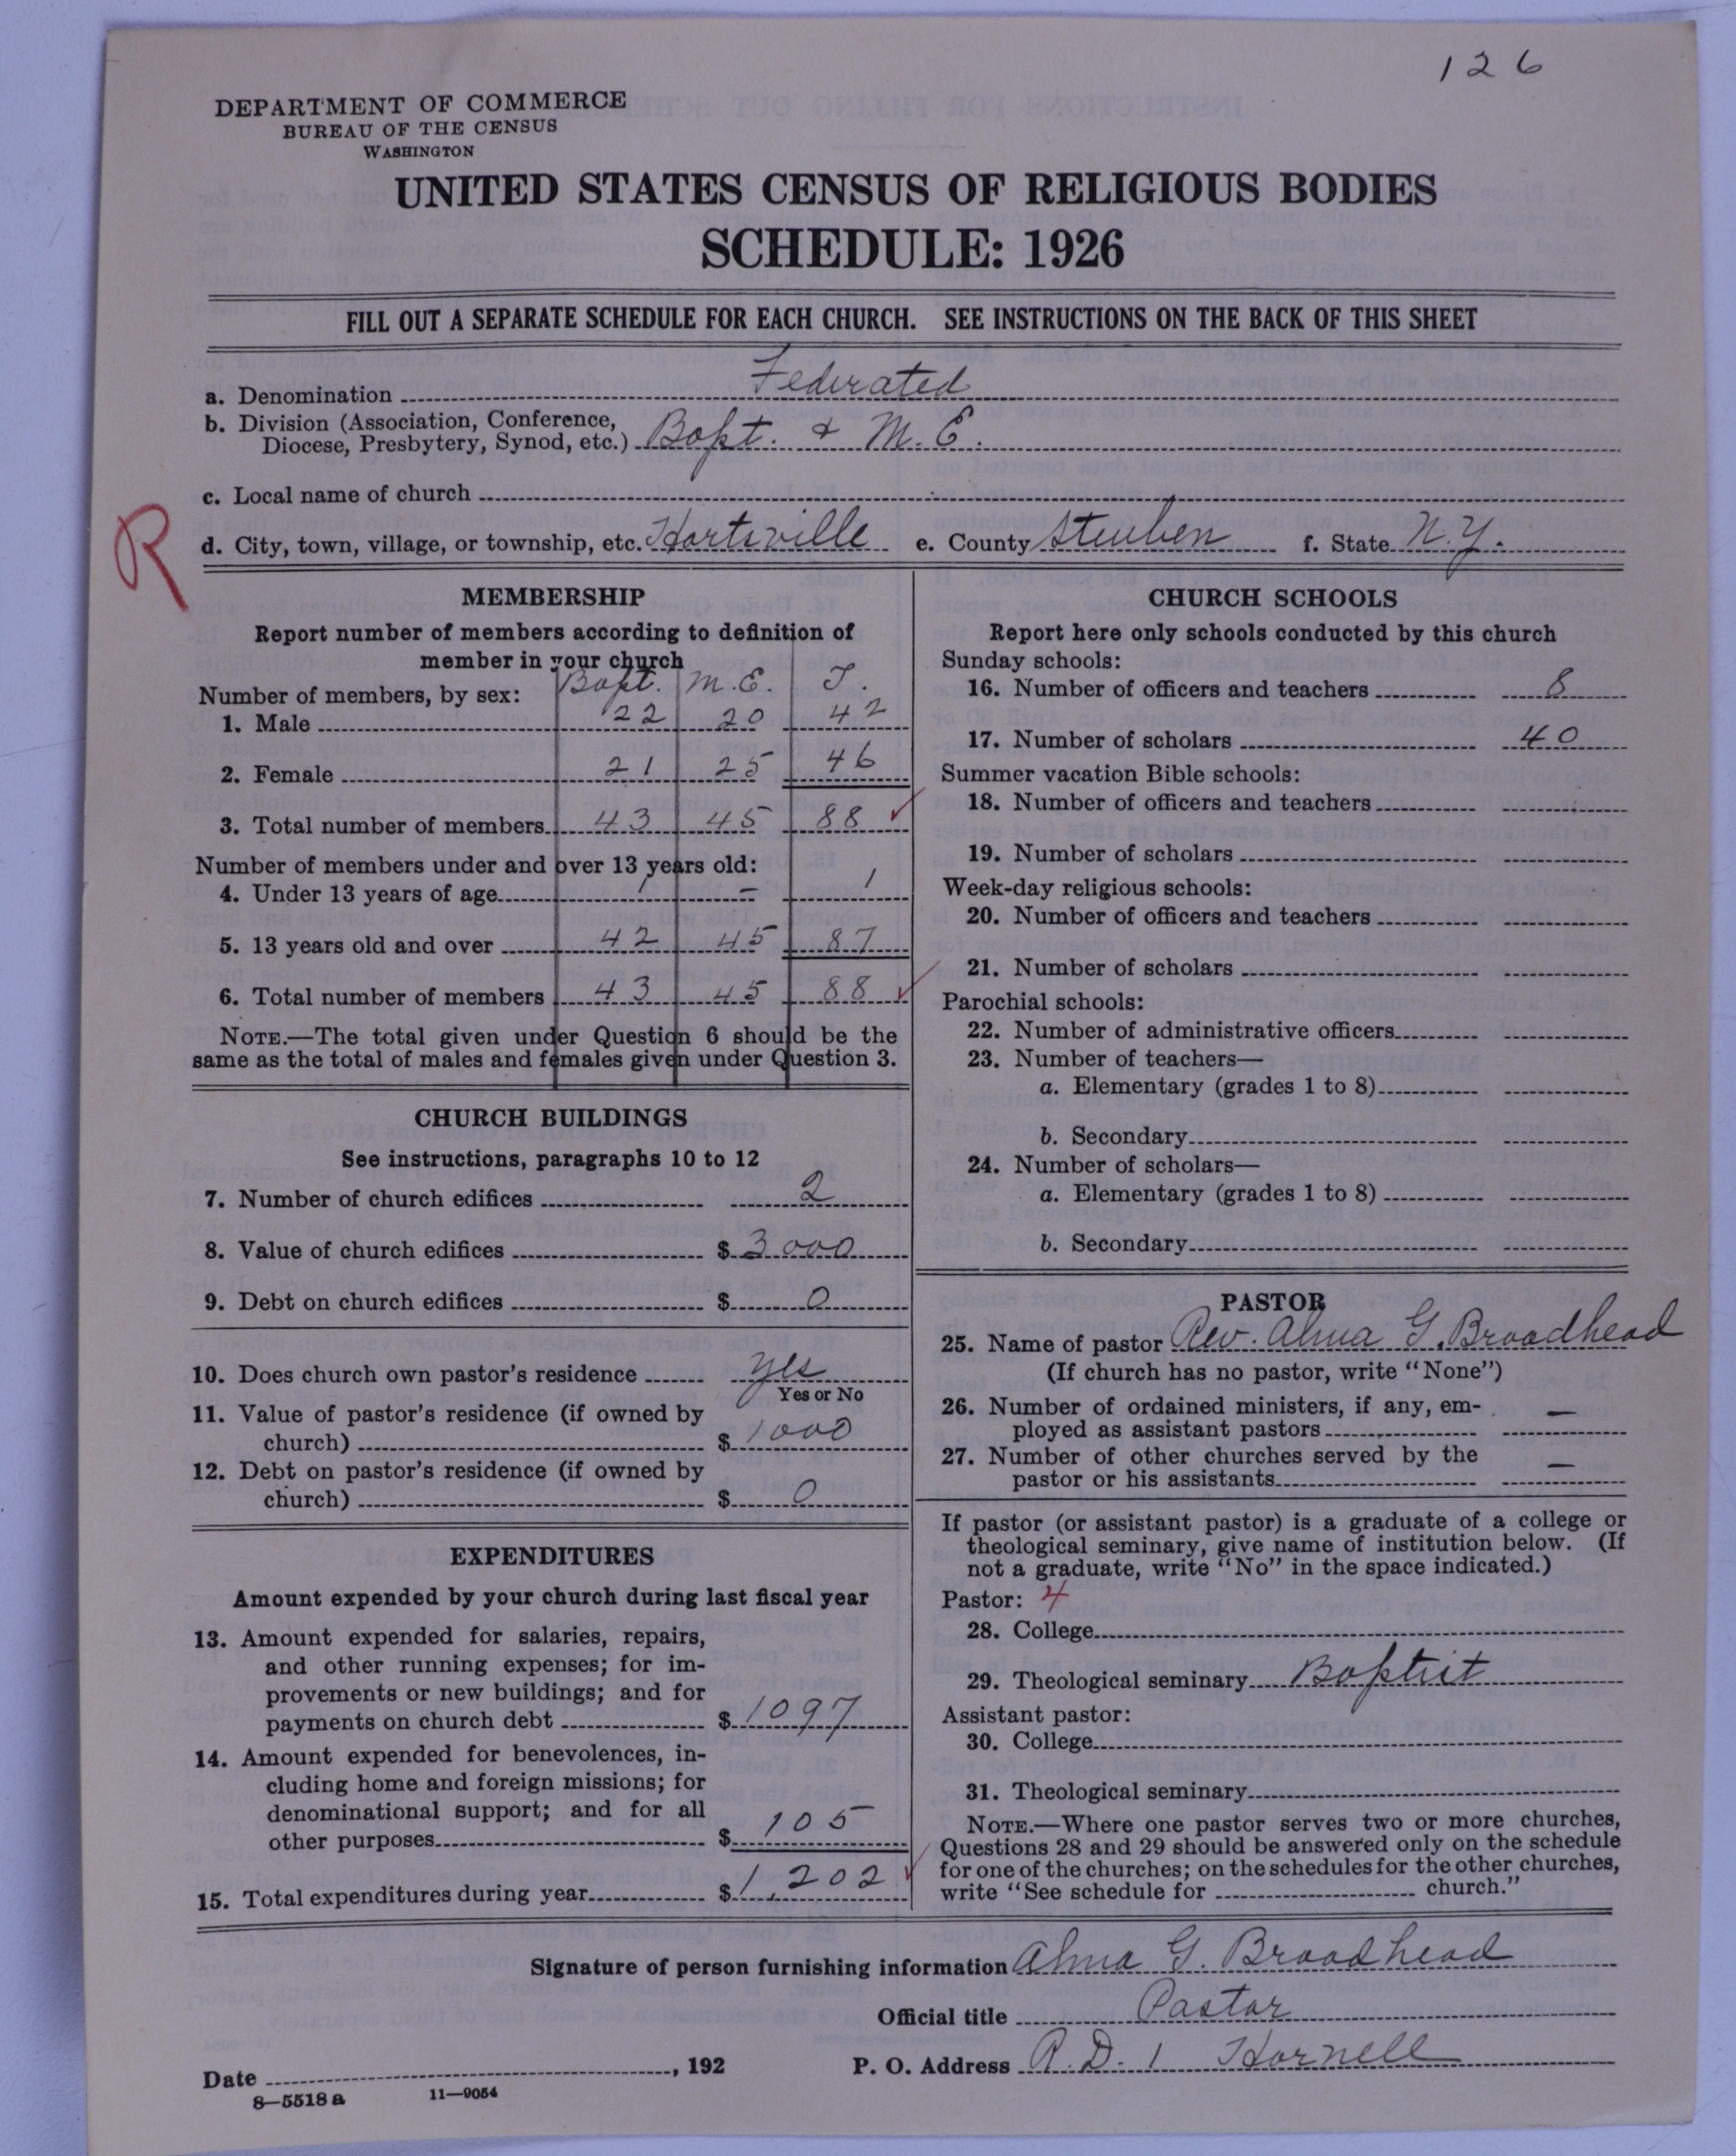 126
DEPARTMENT OF COMMERCE
BUREAU OF THE CENSUS
WASHINGTON
UNITED STATES CENSUS OF RELIGIOUS BODIES
SCHEDULE: 1926
FILL OUT A SEPARATE SCHEDULE FOR EACH CHURCH. SEE INSTRUCTIONS ON THE BACK OF THIS SHEET
a. Denomination Federated
b. Division (Association, Conference,
Diocese, Presbytery, Synod, etc.) Bapt. & M.E.
c. Local name of church
R
d. City, town, village, or township, etc. Hartsville e. County Steuben f. State N.Y.
MEMBERSHIP
Report number of members according to definition of
member in your church
Number of members, by sex: Bapt. M.E. T.
1. Male 22 20 42
2. Female 21 25 46
3. Total number of members 43 45 88
Number of members under and over 13 years old:
4. Under 13 years of age 1 — 1
5. 13 years old and over 42 45 87
6. Total number of members 43 45 88
NOTE.—The total given under Question 6 should be the
same as the total of males and females given under Question 3.
CHURCH BUILDINGS
See instructions, paragraphs 10 to 12
7. Number of church edifices 2
8. Value of church edifices $ 3000
9. Debt on church edifices $ 0
10. Does church own pastor's residence yes
Yes or No
11. Value of pastor's residence (if owned by
church) $ 1000
12. Debt on pastor's residence (if owned by
church) $ 0
EXPENDITURES
Amount expended by your church during last fiscal year
13. Amount expended for salaries, repairs,
and other running expenses; for im-
provements or new buildings; and for
payments on church debt $ 1097
14. Amount expended for benevolences, in-
cluding home and foreign missions; for
denominational support; and for all
other purposes $ 105
15. Total expenditures during year $ 1,202
CHURCH SCHOOLS
Report here only schools conducted by this church
Sunday schools:
16. Number of officers and teachers 8
17. Number of scholars 40
Summer vacation Bible schools:
18. Number of officers and teachers
19. Number of scholars
Week-day religious schools:
20. Number of officers and teachers
21. Number of scholars
Parochial schools:
22. Number of administrative officers
23. Number of teachers—
a. Elementary (grades 1 to 8)
b. Secondary
24. Number of scholars—
a. Elementary (grades 1 to 8)
b. Secondary
PASTOR
25. Name of pastor Rev. Alma G. Broadhead
(If church has no pastor, write "None")
26. Number of ordained ministers, if any, em-
ployed as assistant pastors —
27. Number of other churches served by the
pastor or his assistants —
If pastor (or assistant pastor) is a graduate of a college or
theological seminary, give name of institution below. (If
not a graduate, write "No" in the space indicated.)
Pastor: 4
28. College
29. Theological seminary Baptist
Assistant pastor:
30. College
31. Theological seminary
NOTE.—Where one pastor serves two or more churches,
Questions 28 and 29 should be answered only on the schedule
for one of the churches; on the schedules for the other churches,
write "See schedule for church."
Signature of person furnishing information Alma G. Broadhead
Official title Pastor
Date , 192 P. O. Address R.D. 1 Hornell
8—5518 a 11—9054